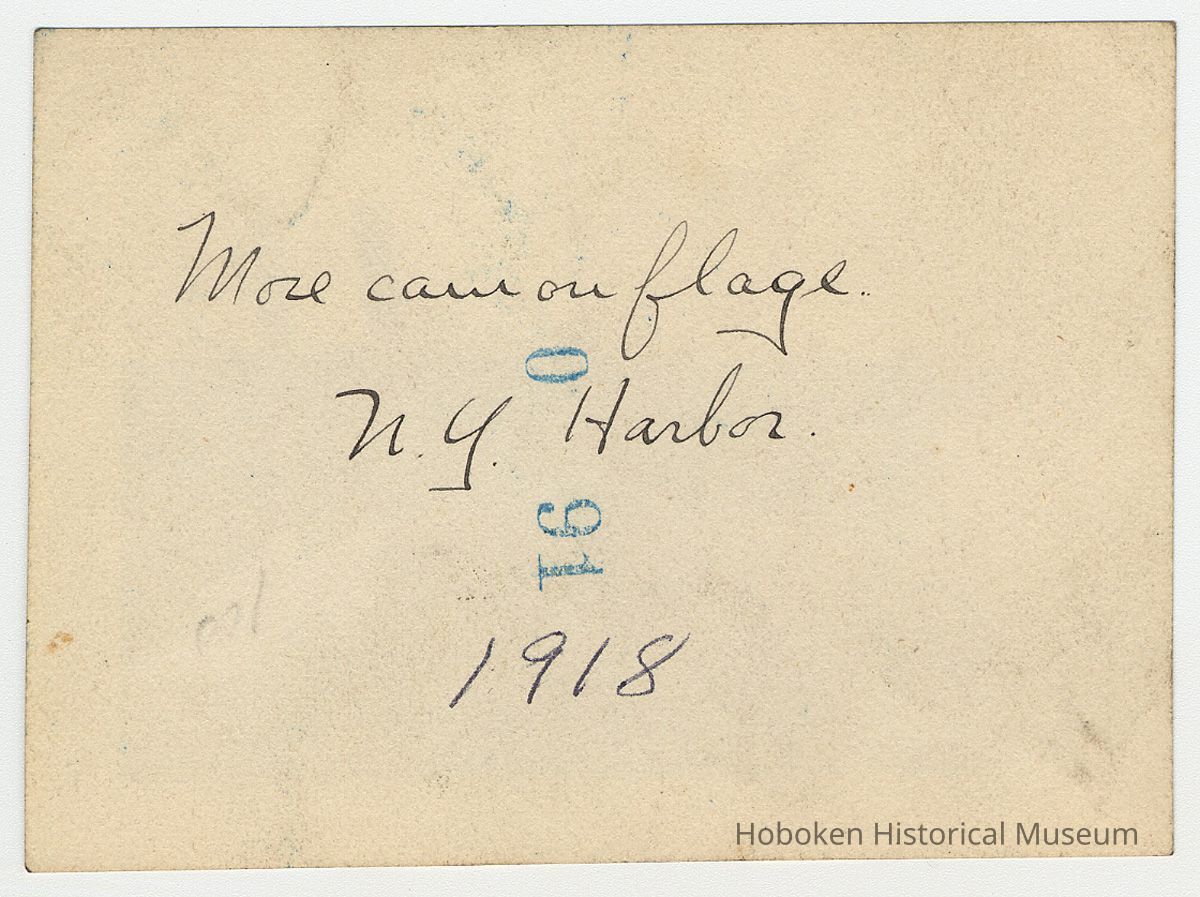 More camouflage.
0
N.Y. Harbor.
16
1918
Hoboken Historical Museum